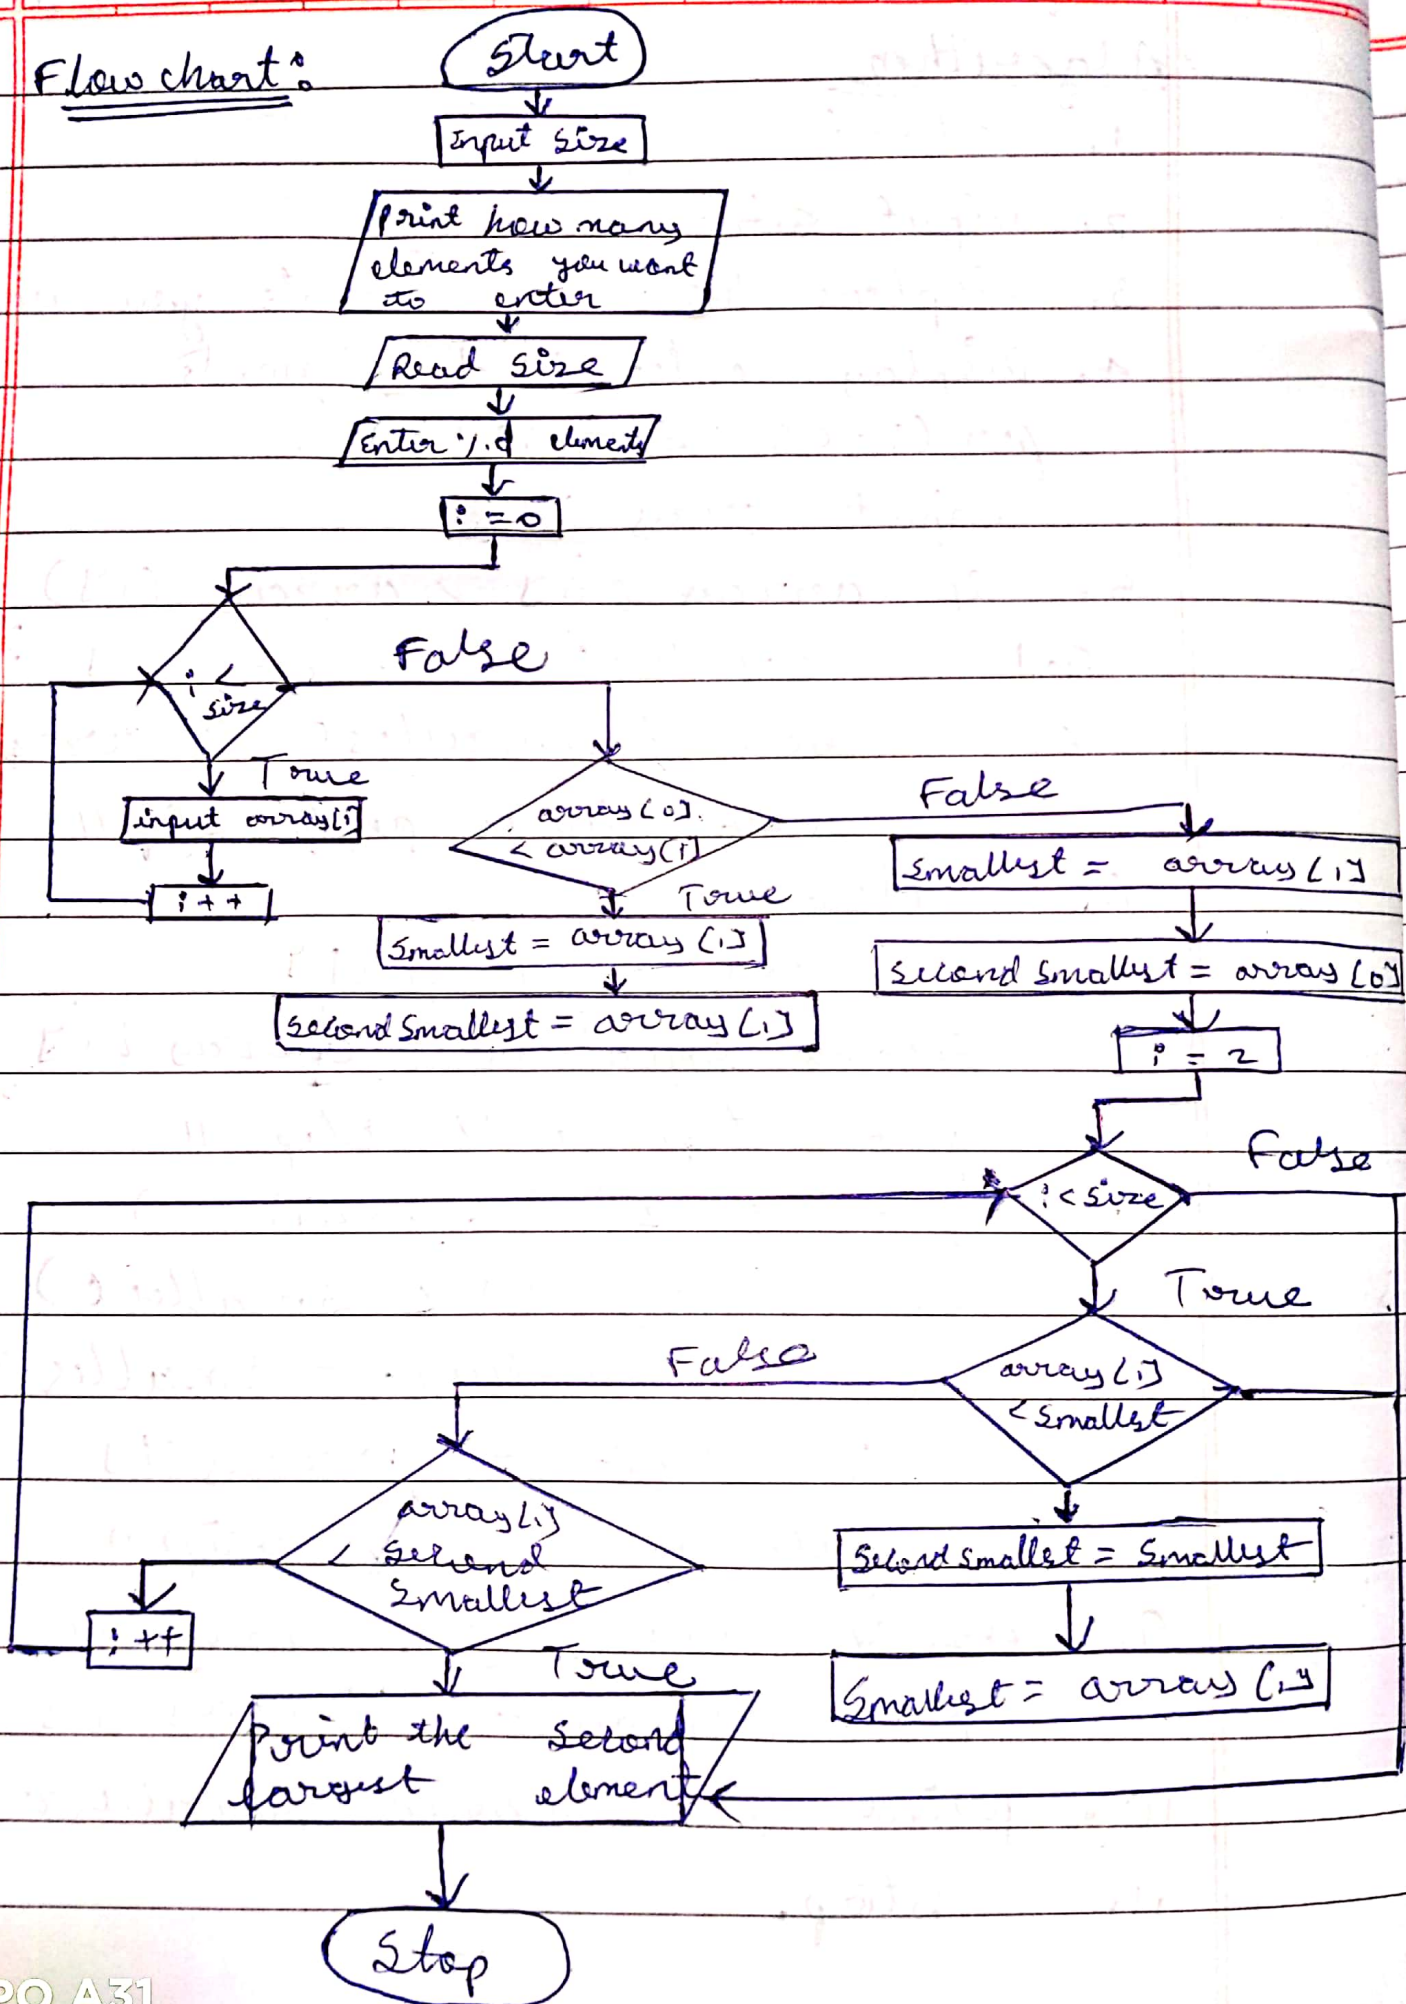 Flow chart:
Start
Input size
Print how many
elements you want
to enter
Read size
Enter %d elements
i = 0
i <
size
False
True
input array[i]
i++
array[0]
< array[1]
False
True
Smallest = array[1]
Second Smallest = array[1]
Smallest = array[1]
Second Smallest = array[0]
i = 2
i < size
False
True
array[i]
< Smallest
False
Second Smallest = Smallest
Smallest = array[i]
array[i]
< Second
Smallest
i++
True
Print the Second
largest element
Stop
A31